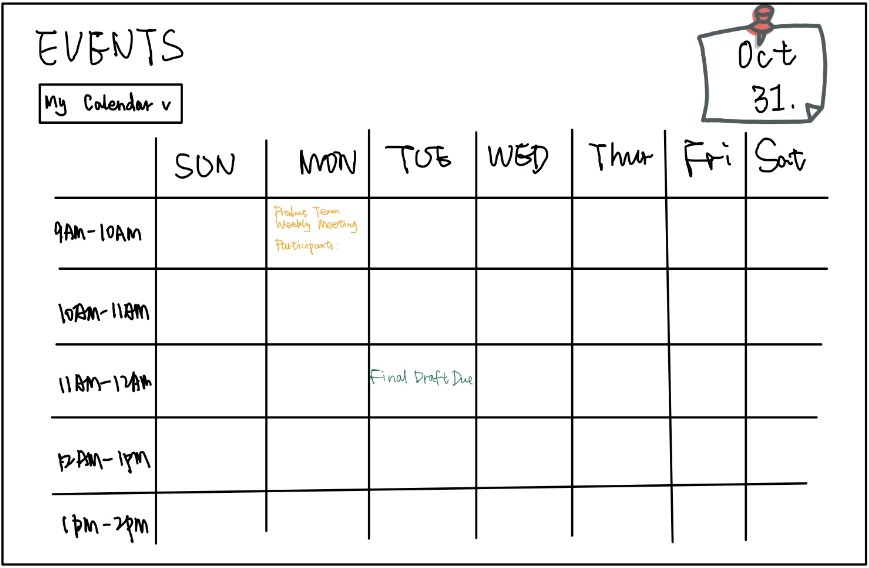 EVENTS
My Calendar v
Oct
31.
SUN MON TUE WED Thur Fri Sat
9AM-10AM
Product Team
Weekly Meeting
Participants:
10AM-11AM
11AM-12AM
Final Draft Due
12AM-1pm
1pm-2pm